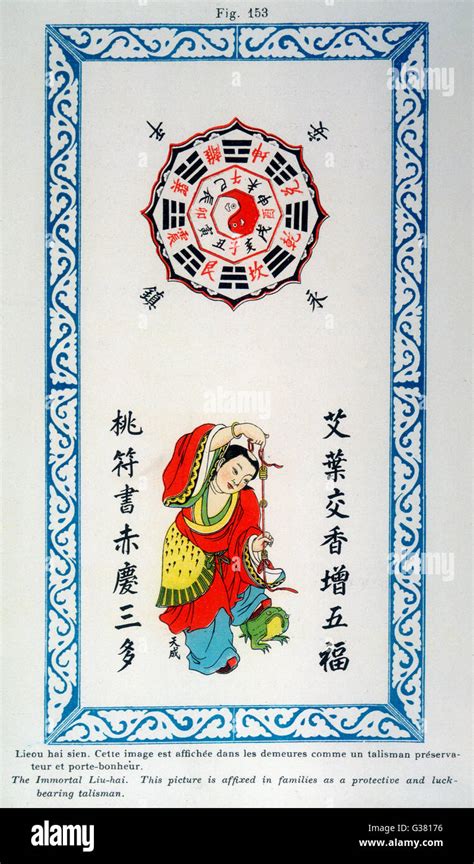 Fig. 153
平 安
離 坤 兌 乾 坎 艮 震 巽
午 未 申 酉 戌 亥 子 丑 寅 卯 辰 巳
鎮 永
艾葉交香增五福
桃符書赤慶三多
天成
Lieou hai sien. Cette image est affichée dans les demeures comme un talisman préserva-
teur et porte-bonheur.
The Immortal Liu-hai. This picture is affixed in families as a protective and luck-
bearing talisman.
a
alamy
a
alamy
Image ID: G38176
www.alamy.com